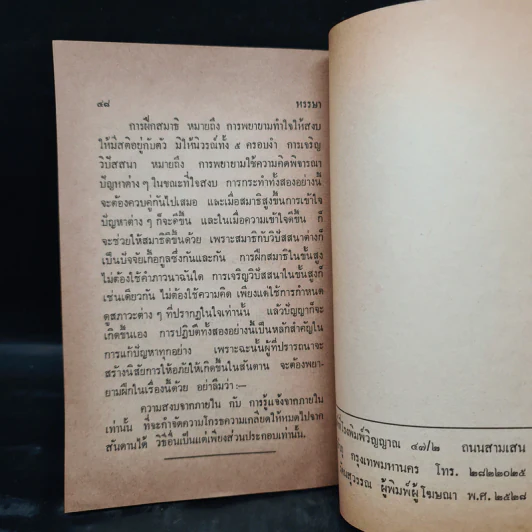 ๔๘ พรรษา
การฝึกสมาธิ หมายถึง การพยายามทำใจให้สงบ
ให้มีสติอยู่กับตัว มิให้นิวรณ์ทั้ง ๕ ครอบงำ การเจริญ
วิปัสสนา หมายถึง การพยายามใช้ความคิดพิจารณา
ปัญหาต่าง ๆ ในขณะที่ใจสงบ การกระทำทั้งสองอย่างนี้
จะต้องควบคู่กันไปเสมอ และเมื่อสมาธิสูงขึ้นการเข้าใจ
ปัญหาต่าง ๆ ก็จะดีขึ้น และในเมื่อความเข้าใจดีขึ้น ก็
จะช่วยให้สมาธิดีขึ้นด้วย เพราะสมาธิกับวิปัสสนาต่างก็
เป็นปัจจัยเกื้อกูลซึ่งกันและกัน การฝึกสมาธิในขั้นสูง
ไม่ต้องใช้คำภาวนาฉันใด การเจริญวิปัสสนาในขั้นสูงก็
เช่นเดียวกัน ไม่ต้องใช้ความคิด เพียงแต่ใช้การกำหนด
ดูสภาวะต่าง ๆ ที่ปรากฏในใจเท่านั้น แล้วปัญญาก็จะ
เกิดขึ้นเอง การปฏิบัติทั้งสองอย่างนี้เป็นหลักสำคัญใน
การแก้ปัญหาทุกอย่าง เพราะฉะนั้นผู้ที่ปรารถนาจะ
สร้างนิสัยการให้อภัยให้เกิดขึ้นในสันดาน จะต้องพยา-
ยามฝึกในเรื่องนี้ด้วย อย่าลืมว่า :—
ความสงบจากภายใน กับ การรู้แจ้งจากภายใน
เท่านั้น ที่จะกำจัดความโกรธความเกลียดให้หมดไปจาก
สันดานได้ วิธีอื่นเป็นแต่เพียงส่วนประกอบเท่านั้น.
โรงพิมพ์วิญญาณ ๔๗/๒ ถนนสามเสน
กรุงเทพมหานคร โทร. ๒๘๒๒๐๒๕
สุวรรณ ผู้พิมพ์ผู้โฆษณา พ.ศ. ๒๕๒๘